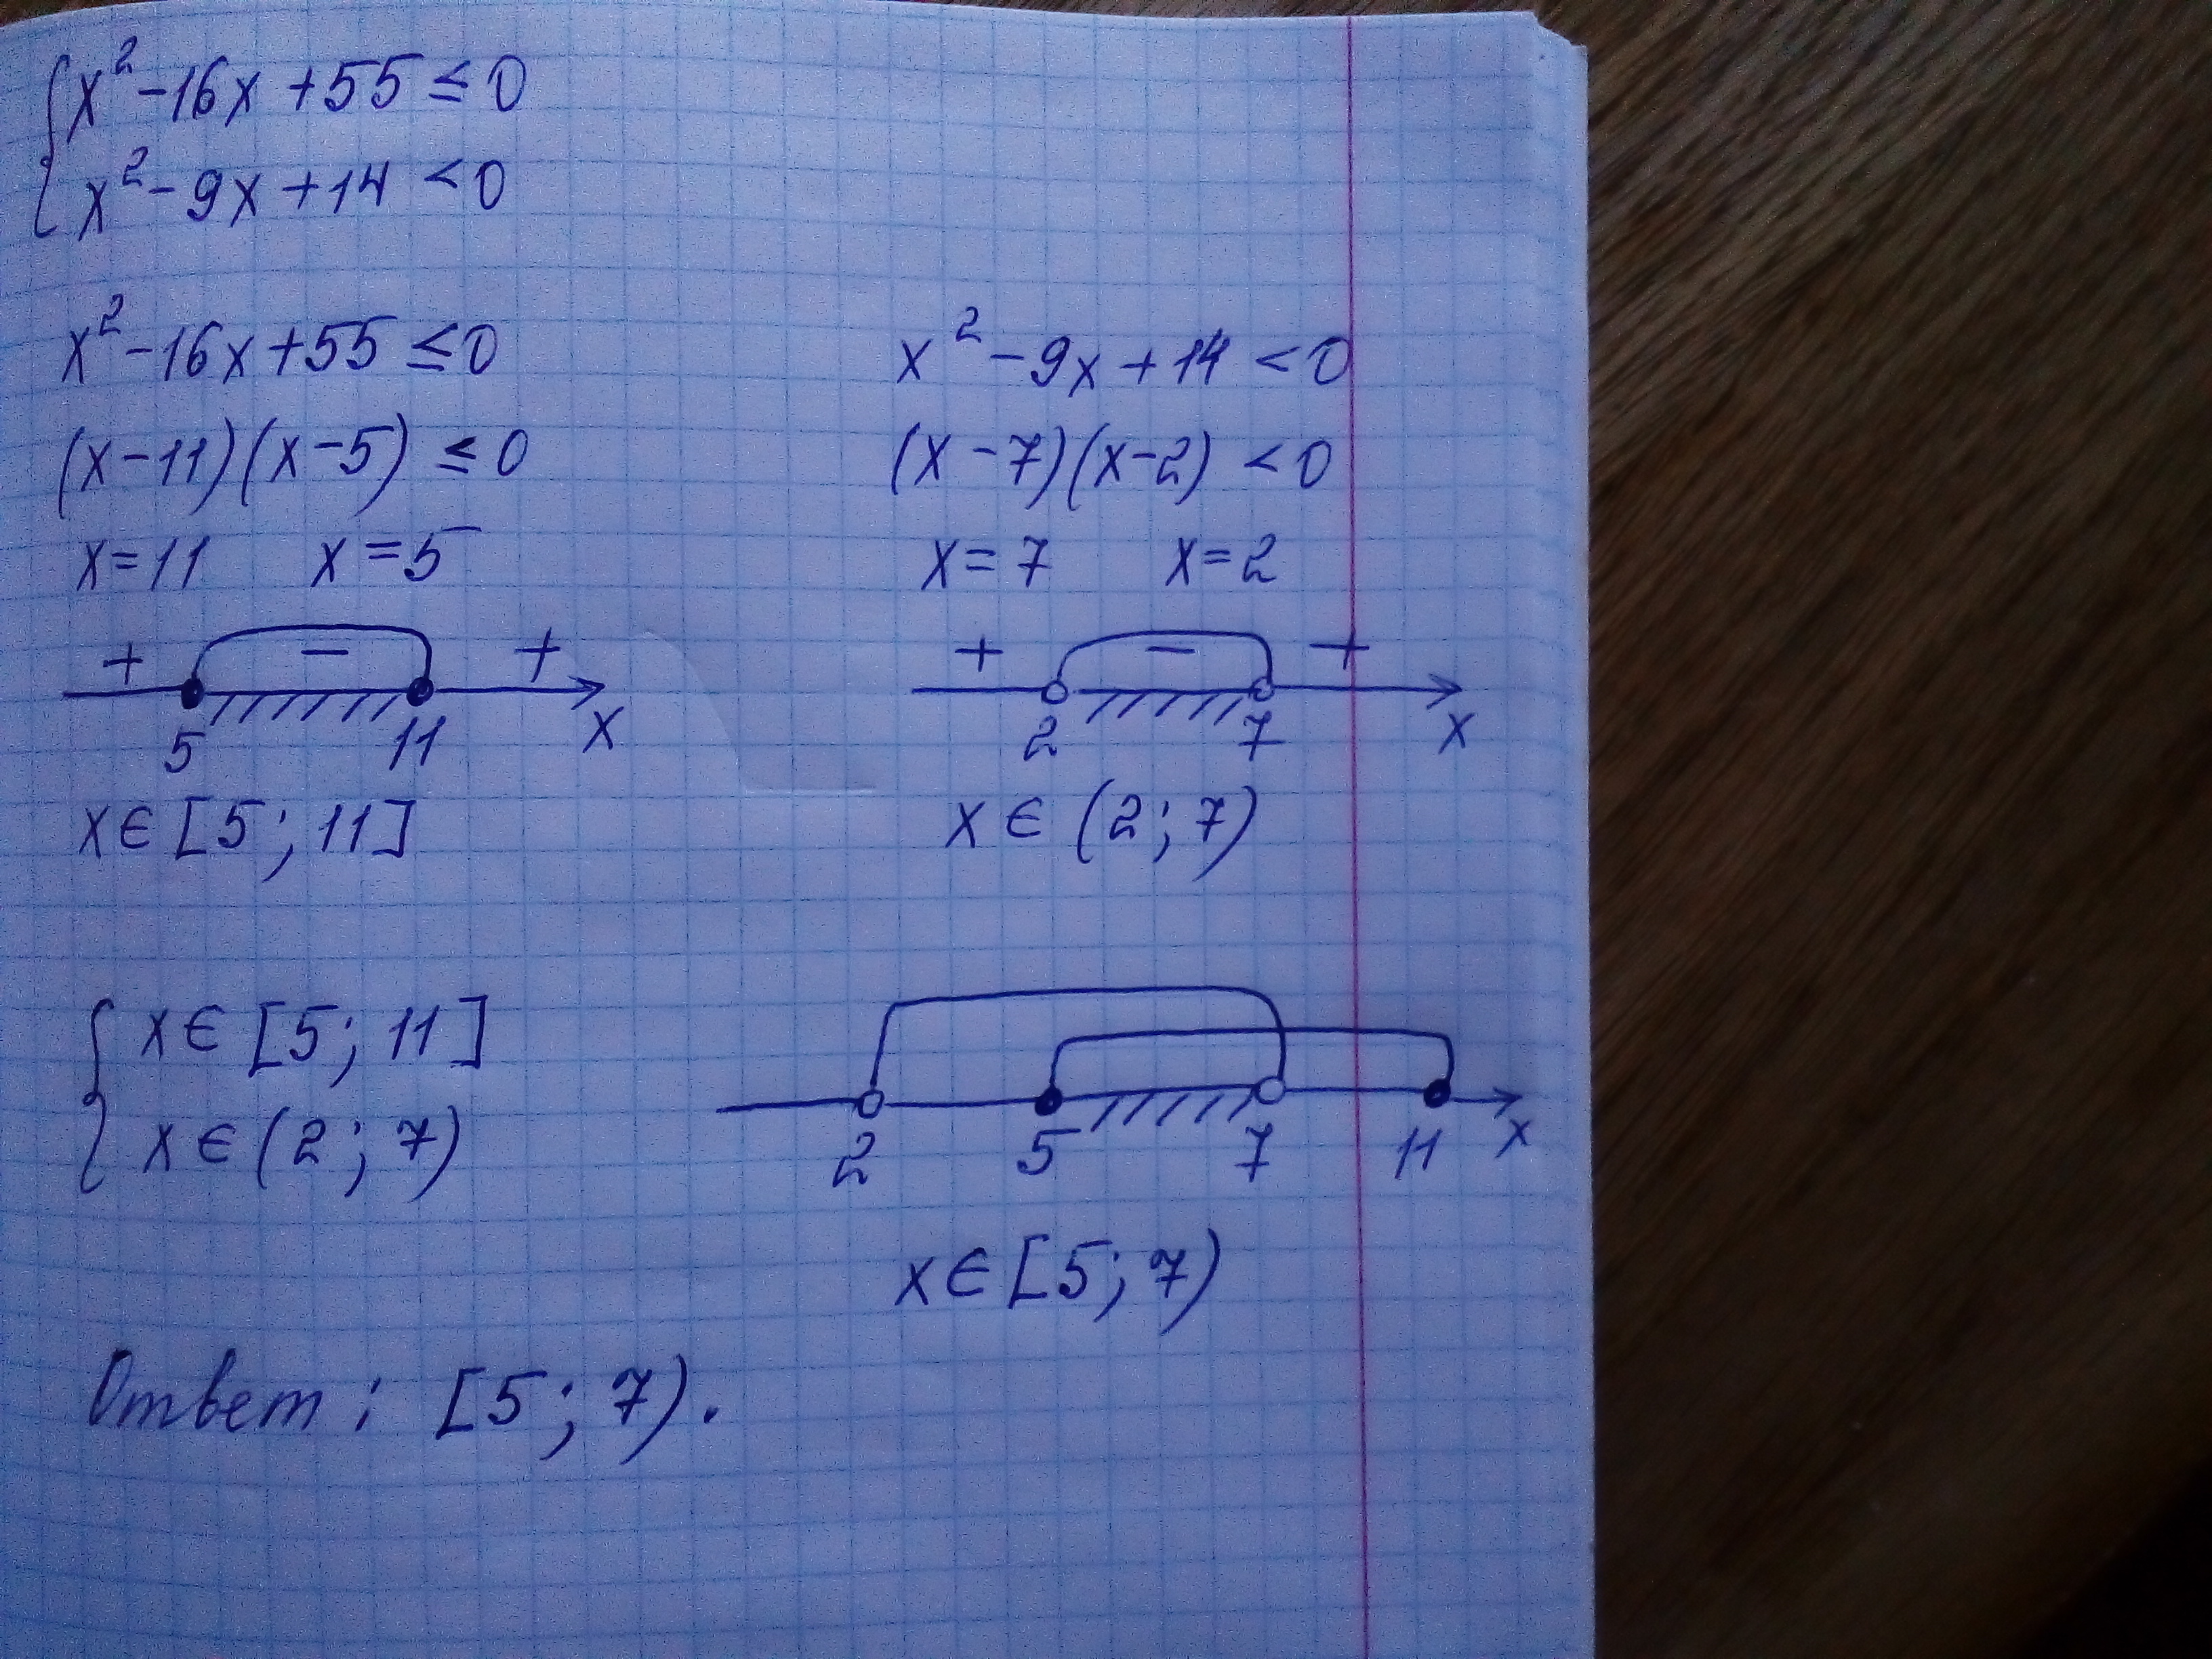 {x² - 16x + 55 ≤ 0
x² - 9x + 14 < 0
x² - 16x + 55 ≤ 0
(x - 11)(x - 5) ≤ 0
x = 11 x = 5
+ - +
5 11 x
x ∈ [5; 11]
x² - 9x + 14 < 0
(x - 7)(x - 2) < 0
x = 7 x = 2
+ - +
2 7 x
x ∈ (2; 7)
{x ∈ [5; 11]
x ∈ (2; 7)
2 5 7 11 x
x ∈ [5; 7)
Ответ: [5; 7).